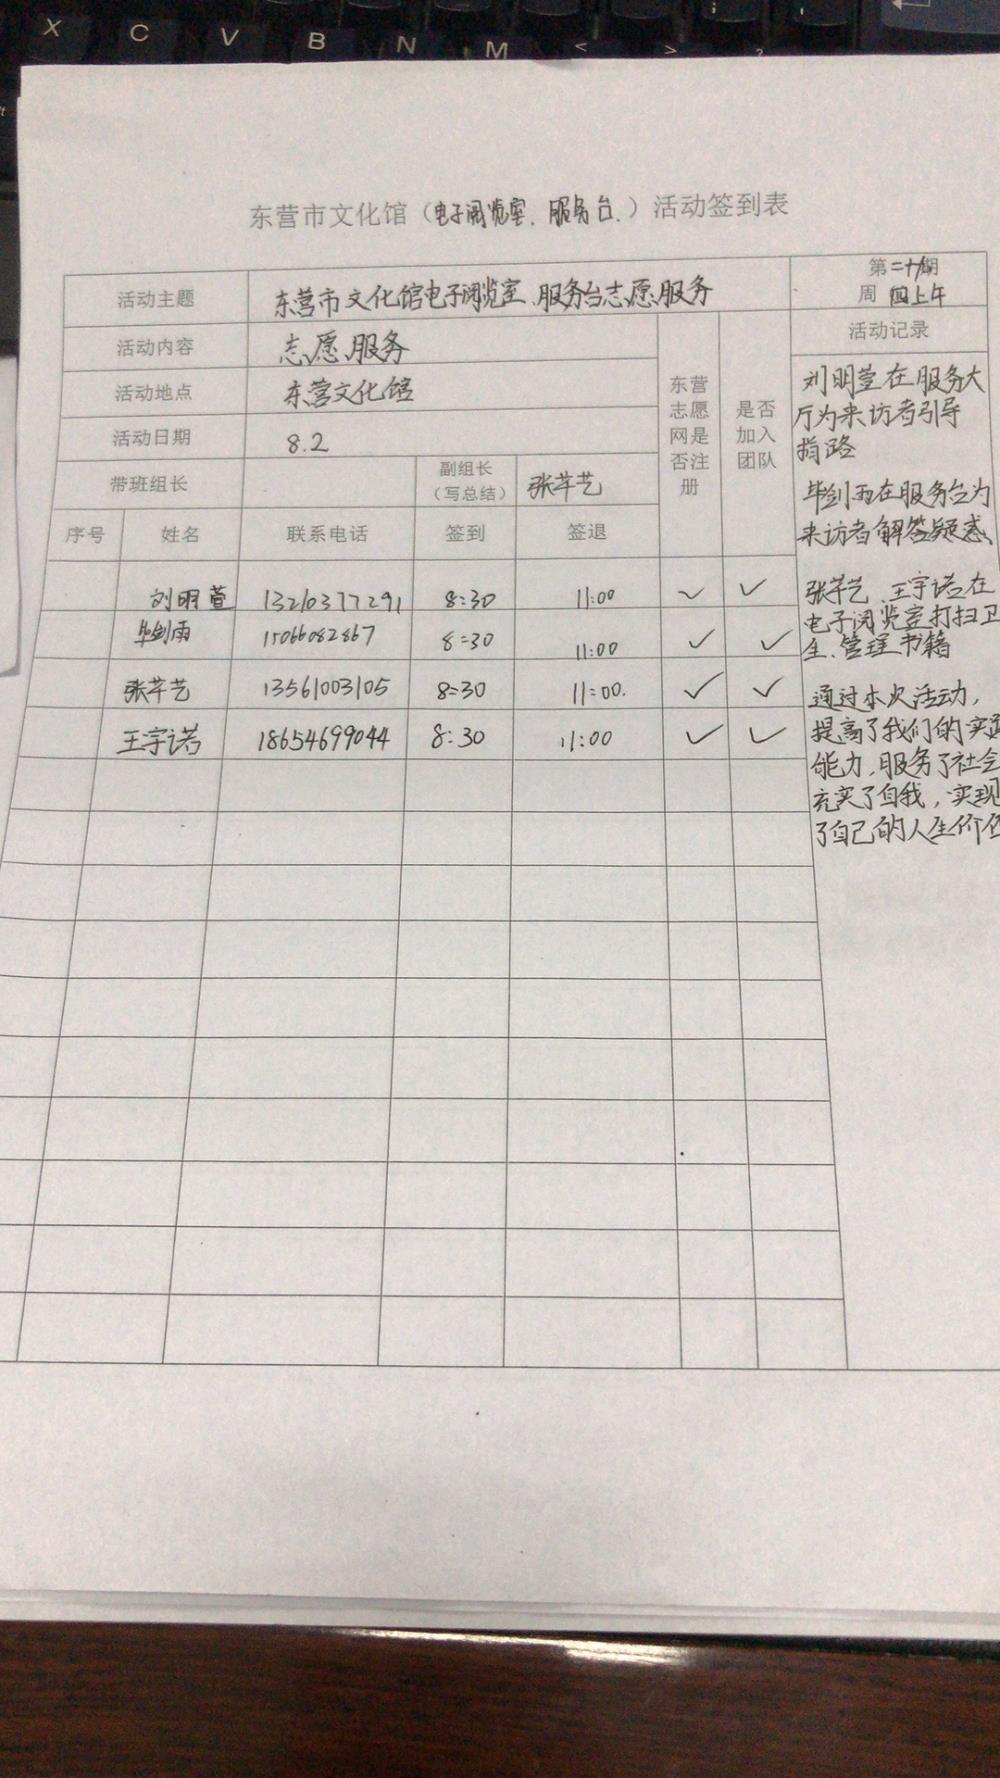 X C V B N M < > ?
东营市文化馆（电子阅览室、服务台、）活动签到表
活动主题 东营市文化馆电子阅览室、服务台志愿服务 第二十 期
周 四上午
活动内容 志愿服务 活动记录
活动地点 东营文化馆
活动日期 8.2
东营志愿网是否注册
是否加入团队
带班组长 副组长（写总结） 张芊艺
序号 姓名 联系电话 签到 签退
刘明萱 13210377291 8:30 11:00 ✓ ✓
毕剑雨 15066082867 8:30 11:00 ✓ ✓
张芊艺 13561003105 8:30 11:00. ✓ ✓
王宇诺 18654699044 8:30 11:00 ✓ ✓
刘明萱在服务大
厅为来访者引导
指路
毕剑雨在服务台为
来访者解答疑惑、
张芊艺、王宇诺在
电子阅览室打扫卫
生、管理书籍
通过本次活动，
提高了我们的实践
能力，服务了社会
充实了自我，实现
了自己的人生价值